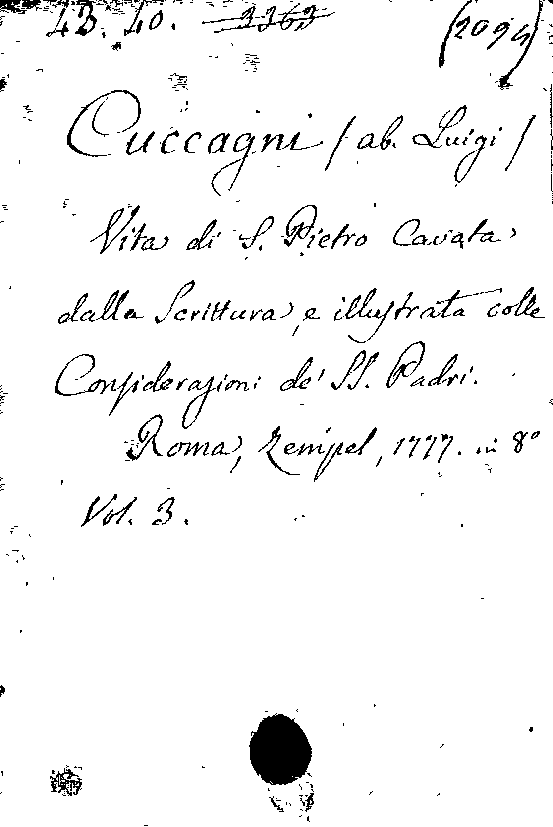 43. 40. 3363 (2094)
Cuccagni / ab. Luigi /
Vita di S. Pietro Cavata
dalla Scrittura, e illustrata colle
Considerazioni de' SS. Padri.
Roma, Zempel, 1777. in 8°
Vol. 3.